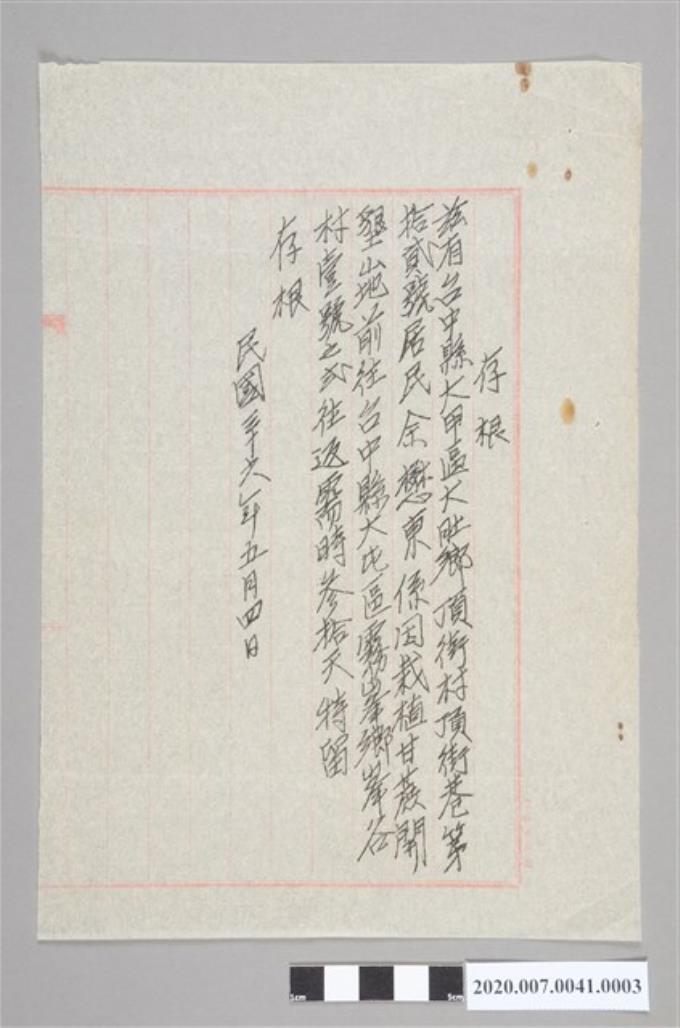 存根
茲有台中縣大甲區大肚鄉頂街村頂街巷第
拾貳號居民余懋東係因栽植甘蔗開
墾山地前往台中縣大屯區霧峯鄉峯谷
村壹號之式往返需時參拾天特留
存根
民國三十六年五月四日
5cm 5cm
2020.007.0041.0003